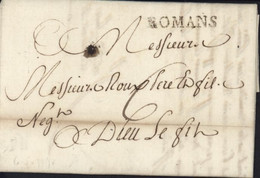 ROMANS
Messieurs
Messieurs Roux Pere & fils
Negts
A Dieu Le fit